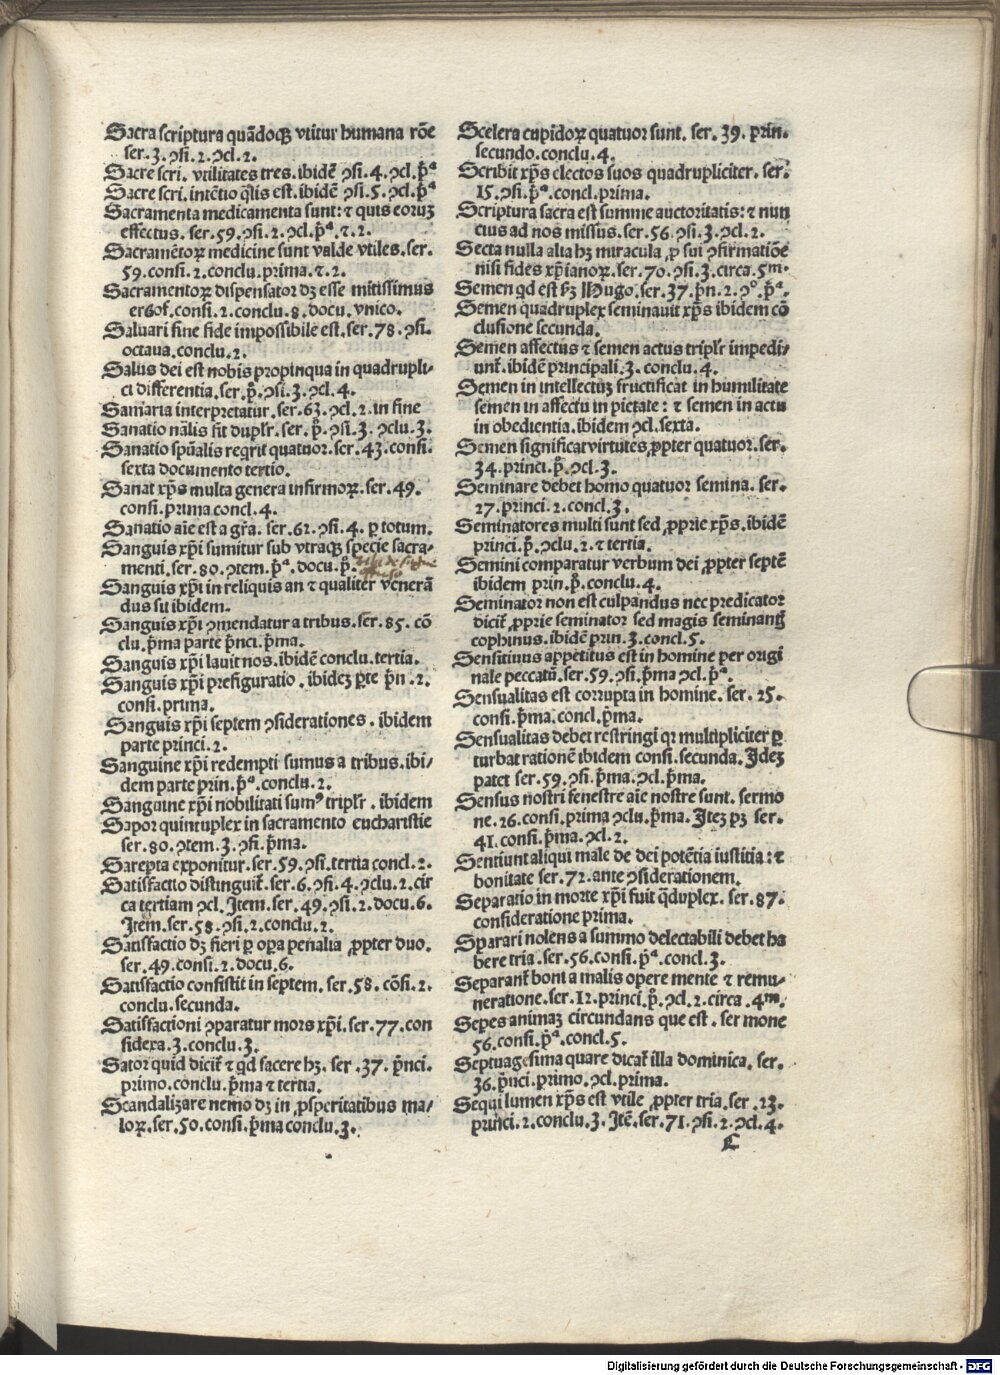 Sacra scriptura quãdoqꝫ vtitur humana rõe
ser.3.ꝯsi.2.ꝯcl.2.
Sacre scri. vtilitates tres.ibidẽ ꝯsi.4.ꝯcl.p̃ᵃ
Sacre scri.intẽtio q̃lis est.ibidẽ ꝯsi.5.ꝯcl.p̃ᵃ
Sacramenta medicamenta sunt:⁊ quis eoruꝫ
effectus. ser.59.ꝯsi.2.ꝯcl.p̃ᵃ.⁊.2.
Sacramẽtoꝝ medicine sunt valde vtiles.ser.
59.consi.2.conclu.prima.⁊.2.
Sacramentoꝝ dispensator dꝫ esse mitissimus
consi.2.conclu.8.docu.vnico.
Saluari sine fide impossibile est.ser.78.ꝯsi.
octaua.conclu.2.
Salus dei est nobis propinqua in quadrupli⸗
ci differentia.ser.p̃.ꝯsi.3.ꝯcl.4.
Samaria interpretatur.ser.63.ꝯcl.2.in fine
Sanatio nãlis fit duplr̃.ser.p̊.ꝯsi.3.ꝯclu.3.
Sanatio spũalis reqrit quatuor.ser.43.consi.
sexta documento tertio.
Sanat xp̃s multa genera infirmoꝝ.ser.49.
consi.prima concl.4.
Sanatio aĩe est a gr̃a. ser.62.ꝯsi.4.ꝑ totum.
Sanguis xp̃i sumitur sub vtraqꝫ specie sacra⸗
menti.ser.80.ꝯtem.p̃ᵃ.docu.p̊.
Sanguis xp̃i in reliquis an ⁊ qualiter venerã
dus su ibidem.
Sanguis xp̃i ꝯmendatur a tribus.ser.85.cõ
clu.p̃ma parte p̃nci.p̃ma.
Sanguis xp̃i lauit nos.ibidẽ conclu.tertia.
Sanguis xp̃i prefiguratio.ibideꝫ p̃te p̃n.2.
consi.prima.
Sanguis xp̃i septem ꝯsiderationes.ibidem
parte princi.2.
Sanguine xp̃i redempti sumus a tribus.ibi⸗
dem parte prin.p̃ᵃ.conclu.2.
Sanguine xp̃i nobilitati sumꝰ triplr̃.ibidem
Sapor quintuplex in sacramento eucharistie
ser.80.ꝯtem.3.ꝯsi.p̃ma.
Sarepta exponitur.ser.59.ꝯsi.tertia concl.2.
Satisfactio distinguit̃.ser.6.ꝯsi.4.ꝯclu.2.cir
ca tertiam ꝯcl.Item.ser.49.ꝯsi.2.docu.6.
Item.ser.58.ꝯsi.2.conclu.2.
Satisfactio dꝫ fieri ꝑ oꝑa penalia ꝓpter duo.
ser.49.consi.2.docu.6.
Satisfactio consistit in septem.ser.58.cõsi.2.
conclu.secunda.
Satisfactioni ꝯparatur mors xp̃i.ser.77.con
sidexa.3.conclu.3.
Sator quid dicit̃ ⁊ qd̃ facere hꝫ.ser.37.p̃nci.
primo.conclu.p̃ma ⁊ tertia.
Scandalizare nemo dꝫ in ꝓsperitatibus ma⸗
loꝝ.ser.50.consi.p̃ma conclu.3.
Scelera cupidoꝝ quatuor sunt.ser.39.prin.
secundo.conclu.4.
Scribit xp̃s electos suos quadrupliciter.ser.
15.ꝯsi.p̃ᵃ.concl.prima.
Scriptura sacra est summe auctoritatis:⁊ nun
cius ad nos missus.ser.56.ꝯsi.3.ꝯcl.2.
Secta nulla alia hꝫ miracula ꝓ sui ꝯfirmatiõe
nisi fides xp̃ianoꝝ.ser.70.ꝯsi.3.circa.5ᵐ.
Semen qd est ẜꝫ Hugo.ser.37.p̃n.2.ꝯ°.p̃ᵃ.
Semen quadruplex seminauit xp̃s ibidem cõ
clusione secunda.
Semen affectus ⁊ semen actus triplr̃ impedi⸗
unt̃.ibidẽ principali.3.conclu.4.
Semen in intellectuꝫ fructificat in humilitate
semen in affectu in pietate:⁊ semen in actu
in obedientia.ibidem ꝯcl.sexta.
Semen significat virtutes ꝓpter quatuor.ser.
34.princi.p̊.ꝯcl.3.
Seminare debet homo quatuor semina.ser.
27.princi.2.concl.3.
Seminatores multi sunt sed ꝓprie xp̃s.ibidẽ
princi.p̃.ꝯclu.2.⁊ tertia.
Semini comparatur verbum dei ꝓpter septẽ
ibidem prin.p̊.conclu.4.
Seminator non est culpandus nec predicator
dicit̃ ꝓprie seminator sed magis seminang̃
cophinus.ibidẽ prin.3.concl.5.
Sensitiuus appetitus est in homine per origi
nale peccatũ.ser.59.ꝯsi.p̃ma ꝯcl.p̃ᵃ.
Sensualitas est corrupta in homine.ser.25.
consi.p̃ma.concl.p̃ma.
Sensualitas debet restringi qꝛ multipliciter ꝑ
turbat rationẽ ibidem consi.secunda.Ideꝫ
patet ser.59.ꝯsi.p̃ma.ꝯcl.p̃ma.
Sensus nostri fenestre aĩe nostre sunt.sermo
ne.26.consi.prima ꝯclu.p̃ma.Iteꝫ pꝫ ser.
41.consi.p̃ma.ꝯcl.2.
Sentiunt aliqui male de dei potẽtia iustitia:⁊
bonitate ser.72.ante ꝯsiderationem.
Separatio in morte xp̃i fuit q̃duplex.ser.87.
consideratione prima.
Sparari nolens a summo delectabili debet ha
bere tria.ser.56.consi.p̃ᵃ.concl.3.
Separant̃ boni a malis opere mente ⁊ remu⸗
neratione.ser.12.princi.p̃.ꝯcl.2.circa.4ᵐ.
Sepes animaꝫ circundans que est.ser mone
56.consi.p̃ᵃ.concl.5.
Septuagesima quare dicat̃ illa dominica.ser.
36.p̃nci.primo.ꝯcl.prima.
Sequi lumen xp̃s est vtile ꝓpter tria.ser.23.
princi.2.conclu.3.Itẽ.ser.71.ꝯsi.2.ꝯcl.4.
C
Digitalisierung gefördert durch die Deutsche Forschungsgemeinschaft - DFG